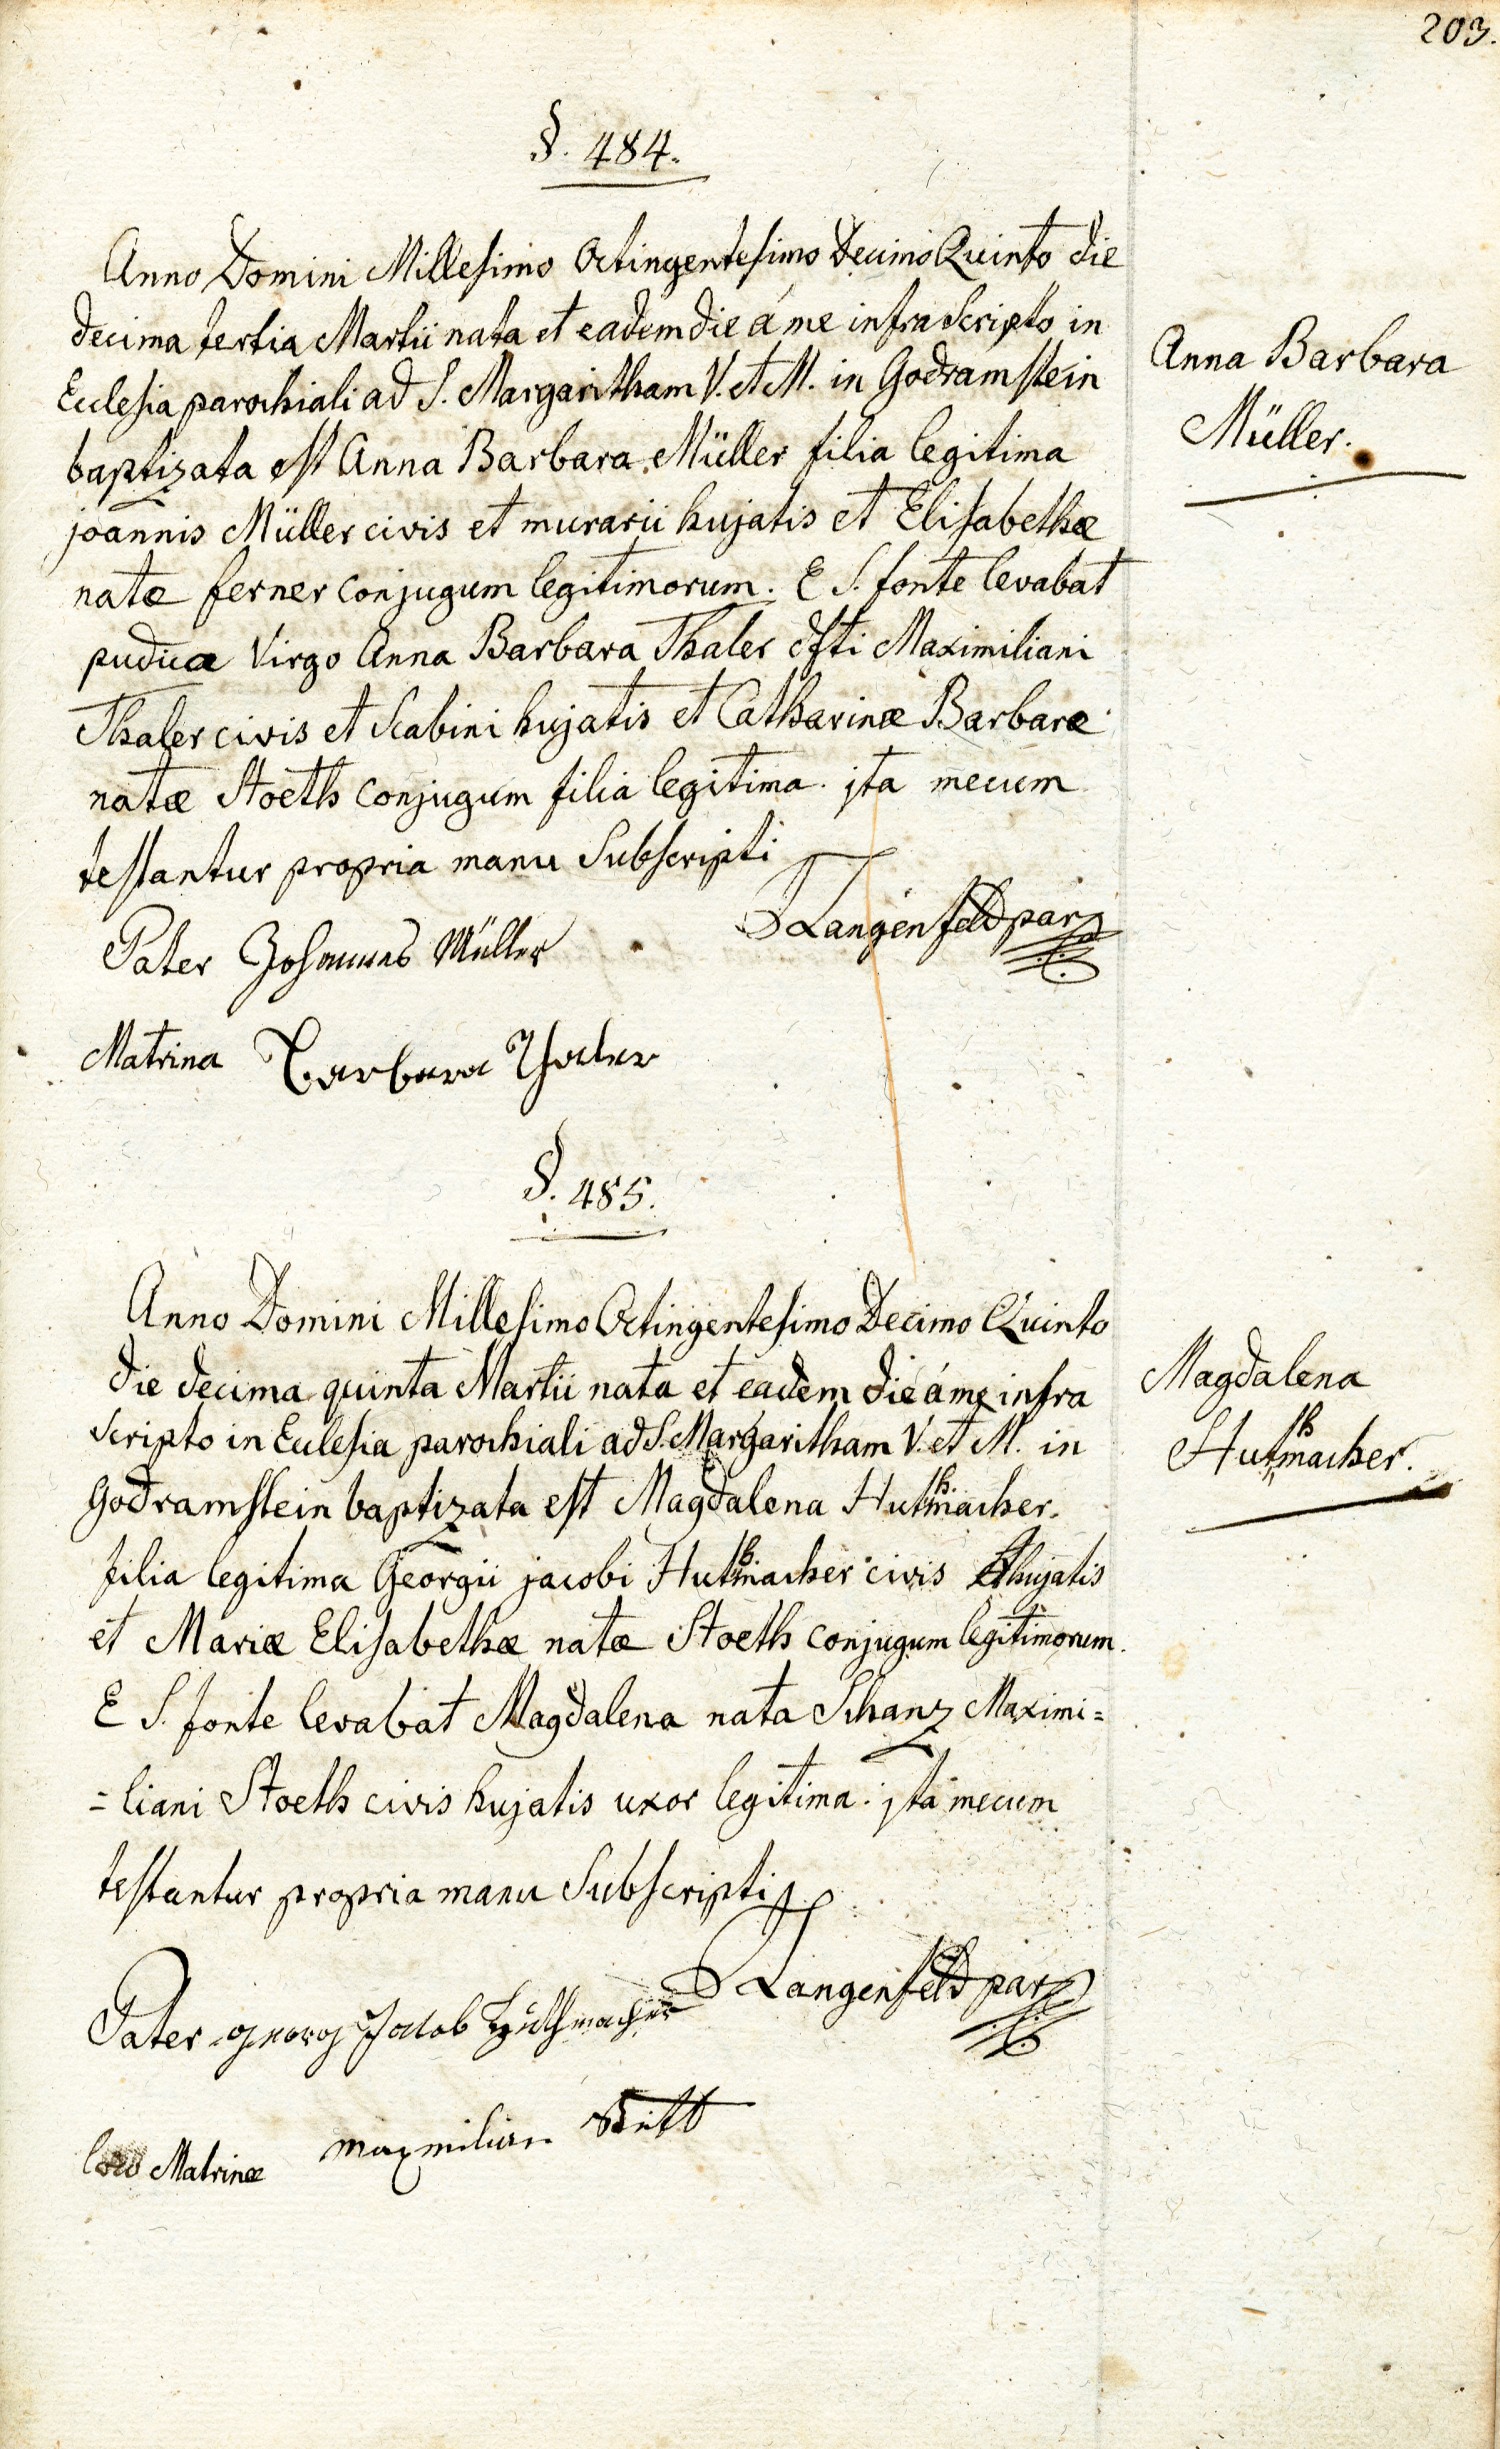 203.
§. 484.
Anno Domini Millesimo Octingentesimo Decimo Quinto die
decima tertia Martii nata et eadem die á me infra Scripto in
Ecclesia parochiali ad S. Margaritham V. et M. in Godramstein
baptizata est Anna Barbara Müller filia legitima
joannis Müller civis et murarii hujatis et Elisabethæ
natæ ferner conjugum legitimorum. E S. fonte levabat
pudica Virgo Anna Barbara Thaler dfti Maximiliani
Thaler civis et Scabini hujatis et Catharinæ Barbaræ
natæ Stoeth conjugum filia legitima. jta mecum
testantur propria manu Subscripti
Langenfeld par
Pater Johannes Müller
Matrina Barbara Thaler
Anna Barbara
Müller.
§. 485.
Anno Domini Millesimo Octingentesimo Decimo Quinto
die decima quinta Martii nata et eadem die á me infra
scripto in Ecclesia parochiali ad S. Margaritham V. et M. in
Godramstein baptizata est Magdalena Huthmacher.
filia legitima Georgii jacobi Huthmacher civis hujatis
et Mariæ Elisabethæ natæ Stoeth conjugum legitimorum.
E S. fonte levabat Magdalena nata Schanz Maximi=
=liani Stoeth civis hujatis uxor legitima. jta mecum
testantur propria manu Subscripti
Langenfeld par
Pater georg Jacob Huthmacher
loco Matrinæ maxmilian
Magdalena
Huthmacher.